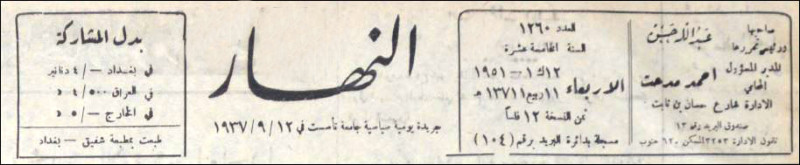 صاحبها
ورئيس تحريرها
عبدالله حسن
المدير المسؤول
المحامي
احمد مدحت
الادارة شارع حسان بن ثابت
صندوق البريد رقم ١٣
تلفون الادارة ٣٢٥٣ المسكن ٦٢٠ جنوب
العدد ١٢٦٠
السنة الخامسة عشرة
الاربعاء
١٢ ك١ — ١٩٥١
١١ ربيع١ ١٣٧١ هـ
ثمن النسخة ١٢ فلساً
مسجلة بدائرة البريد برقم (١٠٤)
النهار
جريدة يومية سياسية جامعة تأسست في ١٩٣٧/٩/١٢
بدل المشاركة
في بغداد —/٤ دنانير
في العراق ٥٠٠/٤ »
في الخارج —/٥ »
طبعت بمطبعة شفيق - بغداد